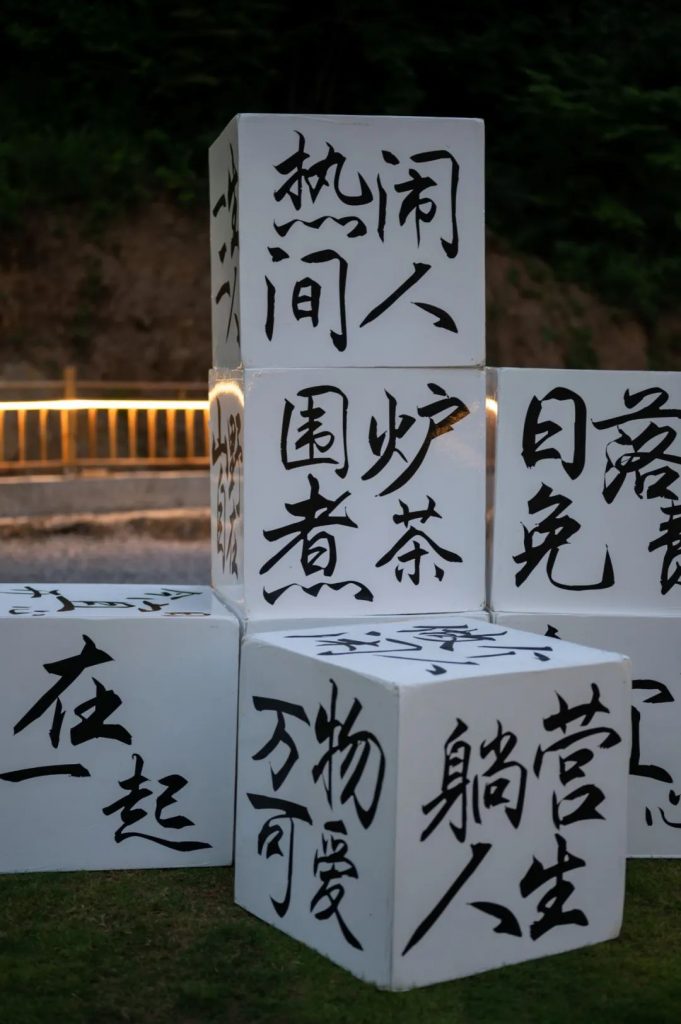 热闹
间人
围炉
煮茶
日落
免
在
一起
万物
可爱
躺营
人生
山野